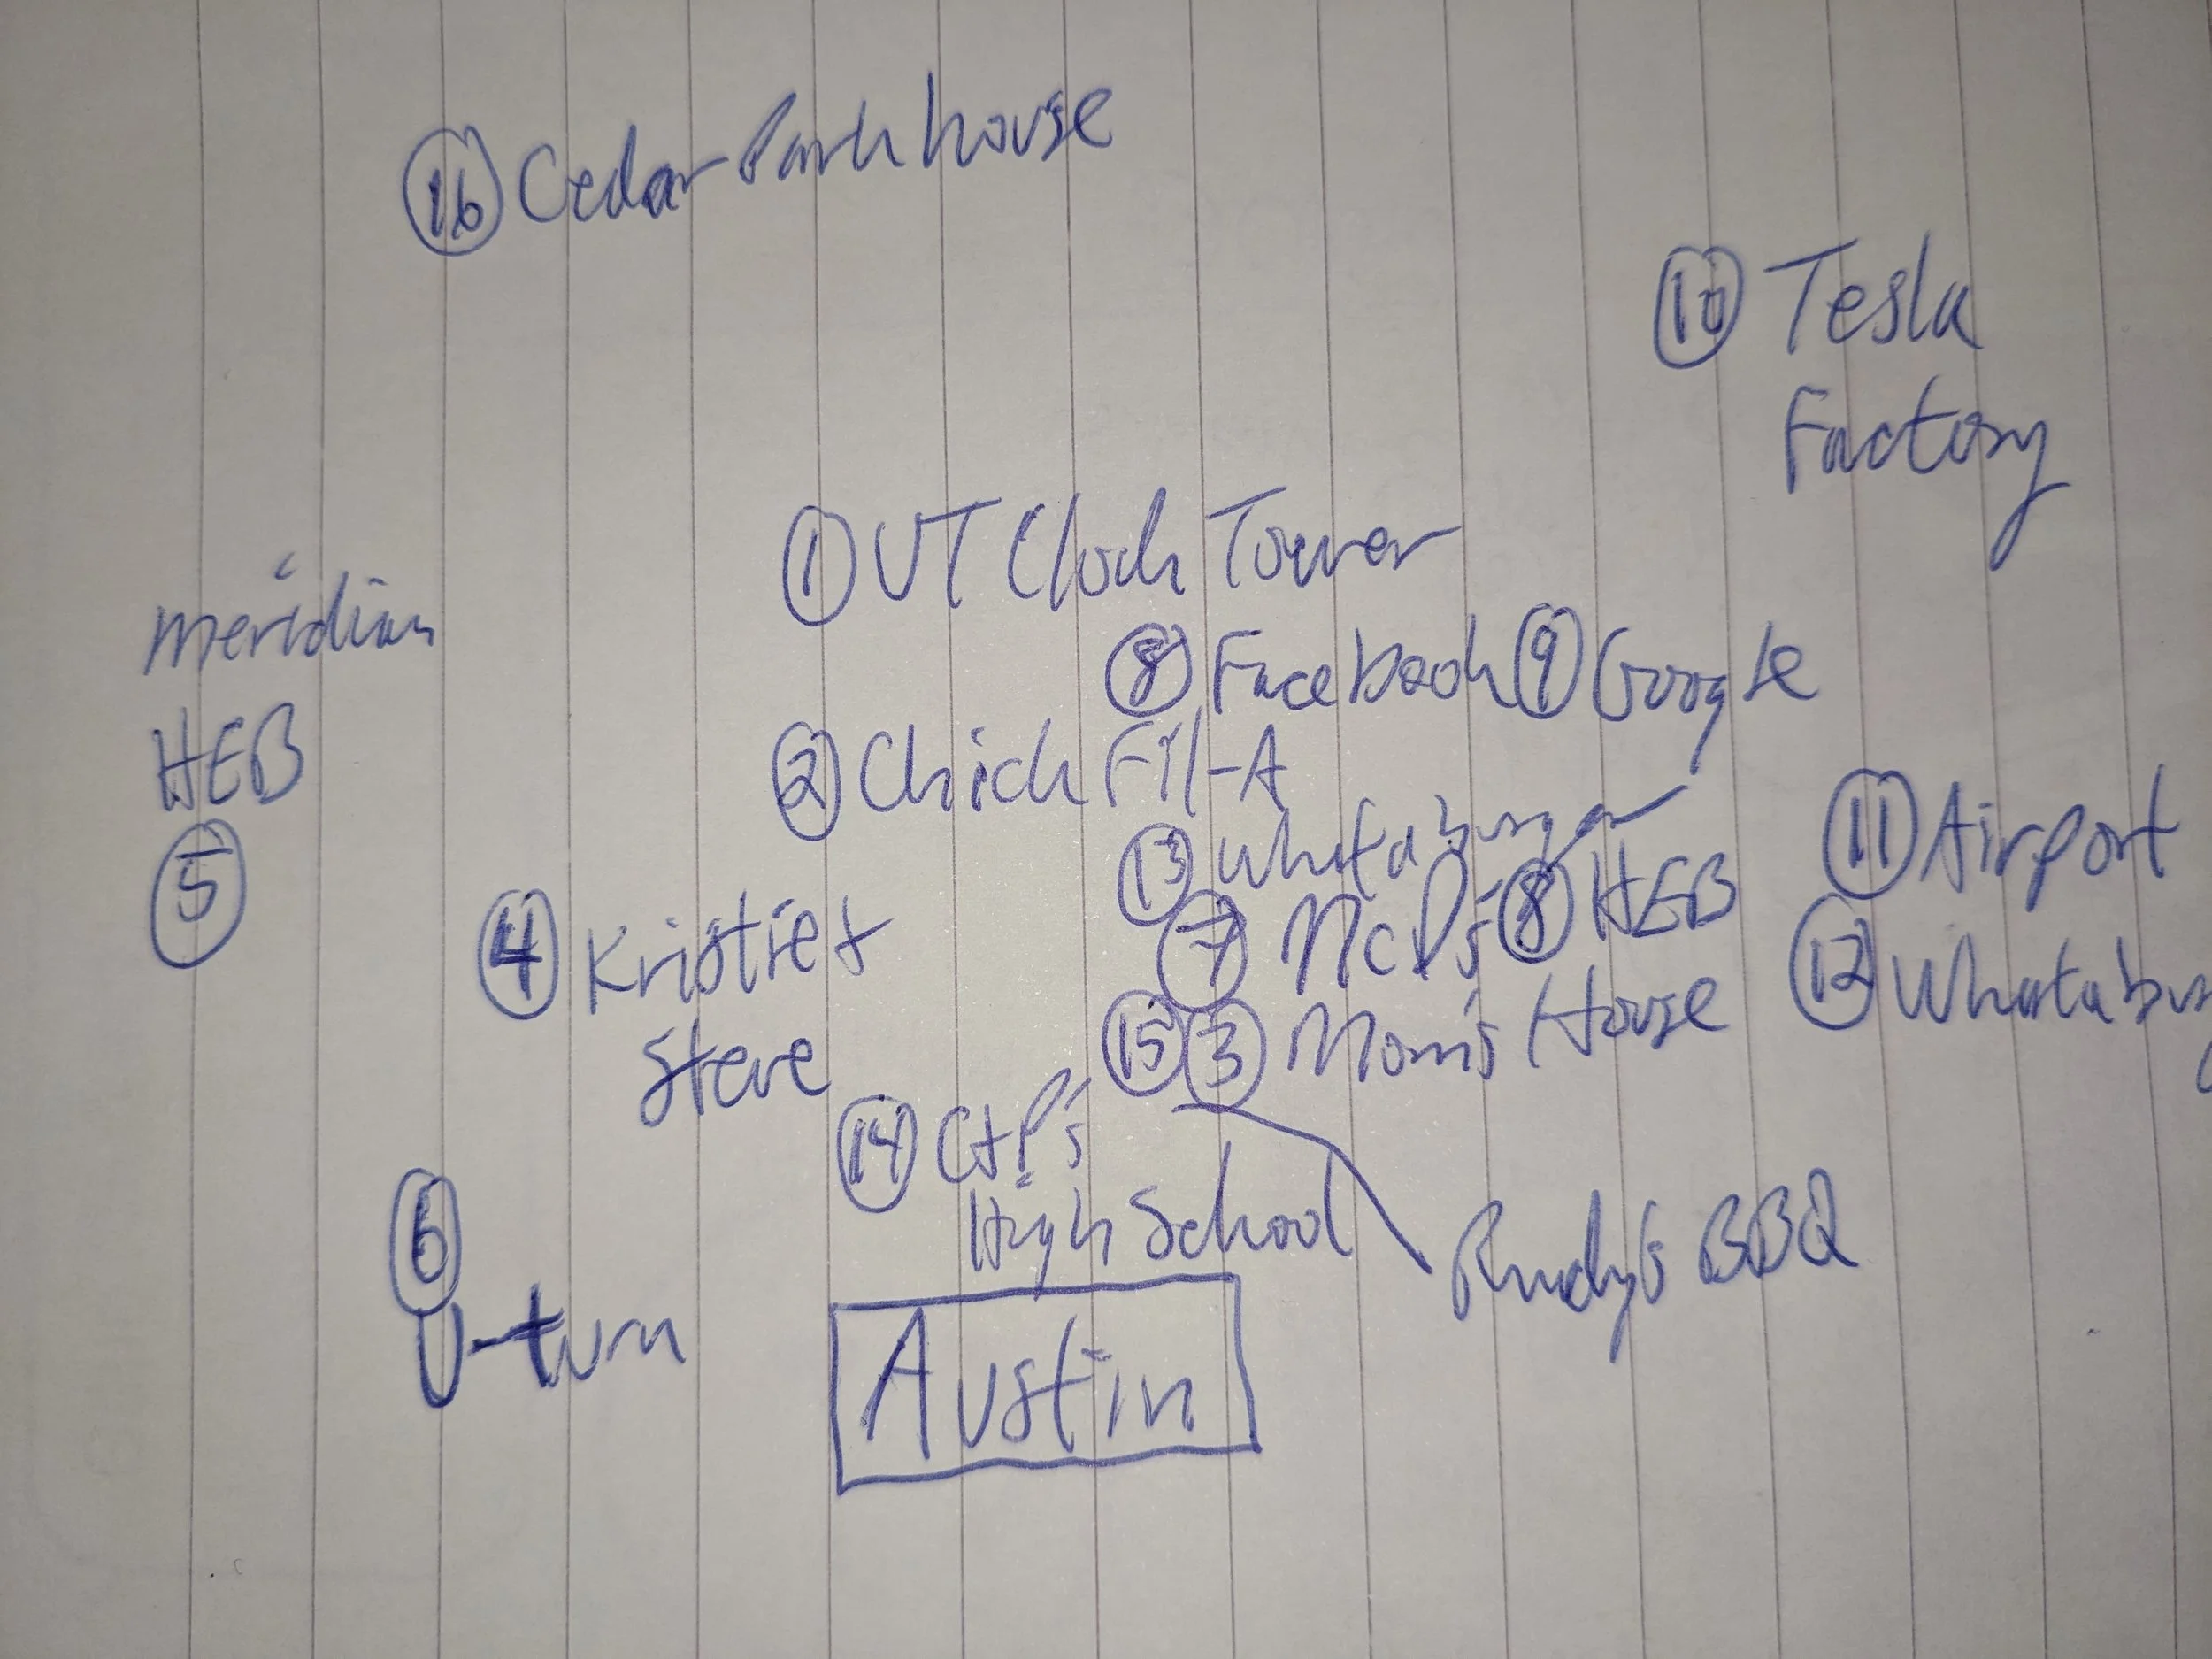 16 Cedar Park house
10 Tesla
Factory
1 UT Clock Tower
meridian
8 Facebook 9 Google
HEB
2 Chick Fil-A
5
13 Whataburger
11 Airport
4 Kristie &
Steve
7 McD's 8 HEB
12 Whatabur
15 3 Mom's House
14 CTP's
High School
6
U-turn
Rudy's BBQ
Austin